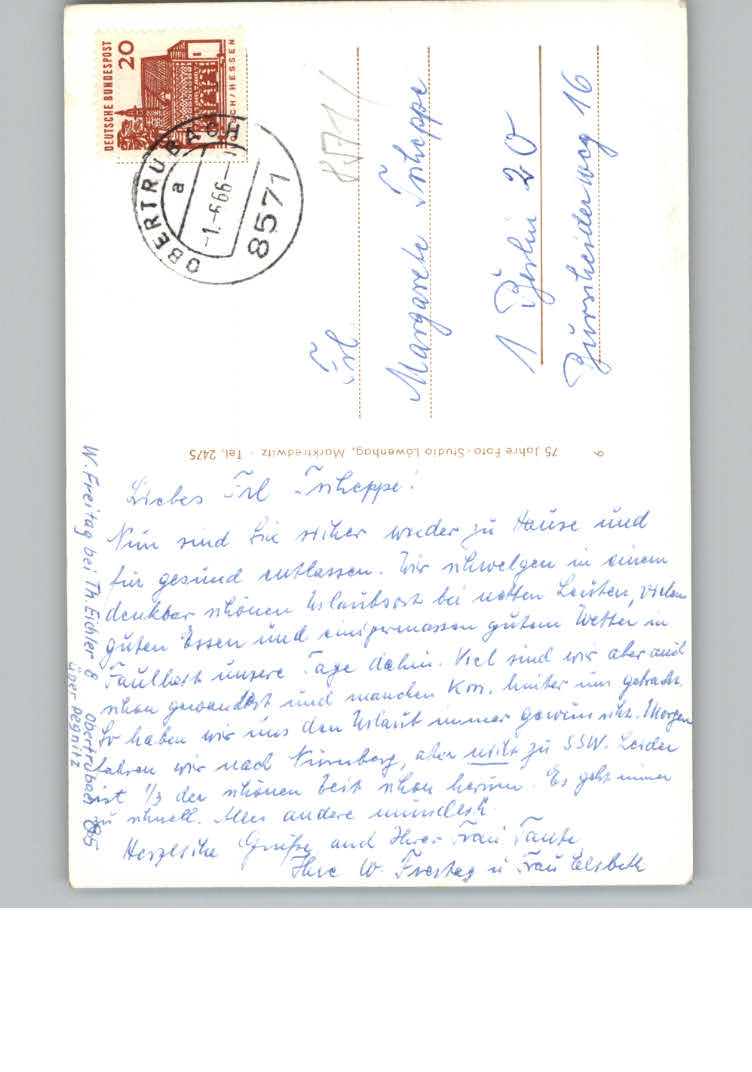 DEUTSCHE BUNDESPOST
20
CH/HESSEN
OBERTRUBACH
a
-1.-6.66-
8571
8571
Frl.
Margarete Tscheppe
1 Berlin 20
Burscheider weg 16
75 Jahre Foto-Studio Löwenhag, Marktredwitz · Tel. 2475
W. Freitag bei Th. Eichler 8 Obertrubach 85
über Pegnitz
Liebes Frl Tscheppe!
Nun sind Sie sicher wieder zu Hause und
für gesund entlassen. Wir schwelgen in einem
denkbar schönen Urlaubsort bei netten Leuten, vielem
guten Essen und einigermassen gutem Wetter in
Faulheit unsere Tage dahin. Viel sind wir aber auch
schon gewandert und manchen Km. hinter uns gebracht.
So haben wir uns den Urlaub immer gewünscht. Morgen
fahren wir nach Nürnberg, aber nicht zu SSW. Leider
ist 1/3 der schönen Zeit schon herum. Es geht immer
zu schnell. Alles andere mündlich.
Herzliche Grüße auch Ihrer Frau Tante
Ihre W. Freitag u Frau Elsbeth